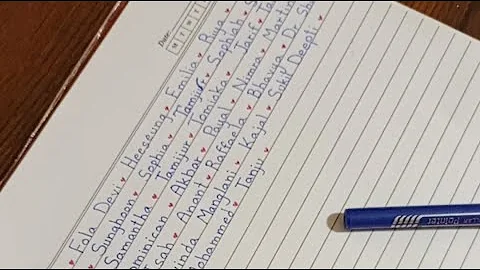 Date:
Eda Devi ♥ Heeseung ♥ Emilia ♥ Ruya ♥
♥ Sunghoon ♥ Sophia ♥ Tamjur ♥ Sophiah ♥
♥ Samantha ♥ Tamijur ♥ Tomioka ♥ Tarif ♥
ominican ♥ Akbar ♥ Payal ♥ Nimra ♥ Martin
sah ♥ Anant ♥ Raffaela ♥ Bhavya ♥ Dr Sh
inda Manglani ♥ Kajal ♥ Sukil Deepti
Mohammed ♥ Tanju ♥
Pointer